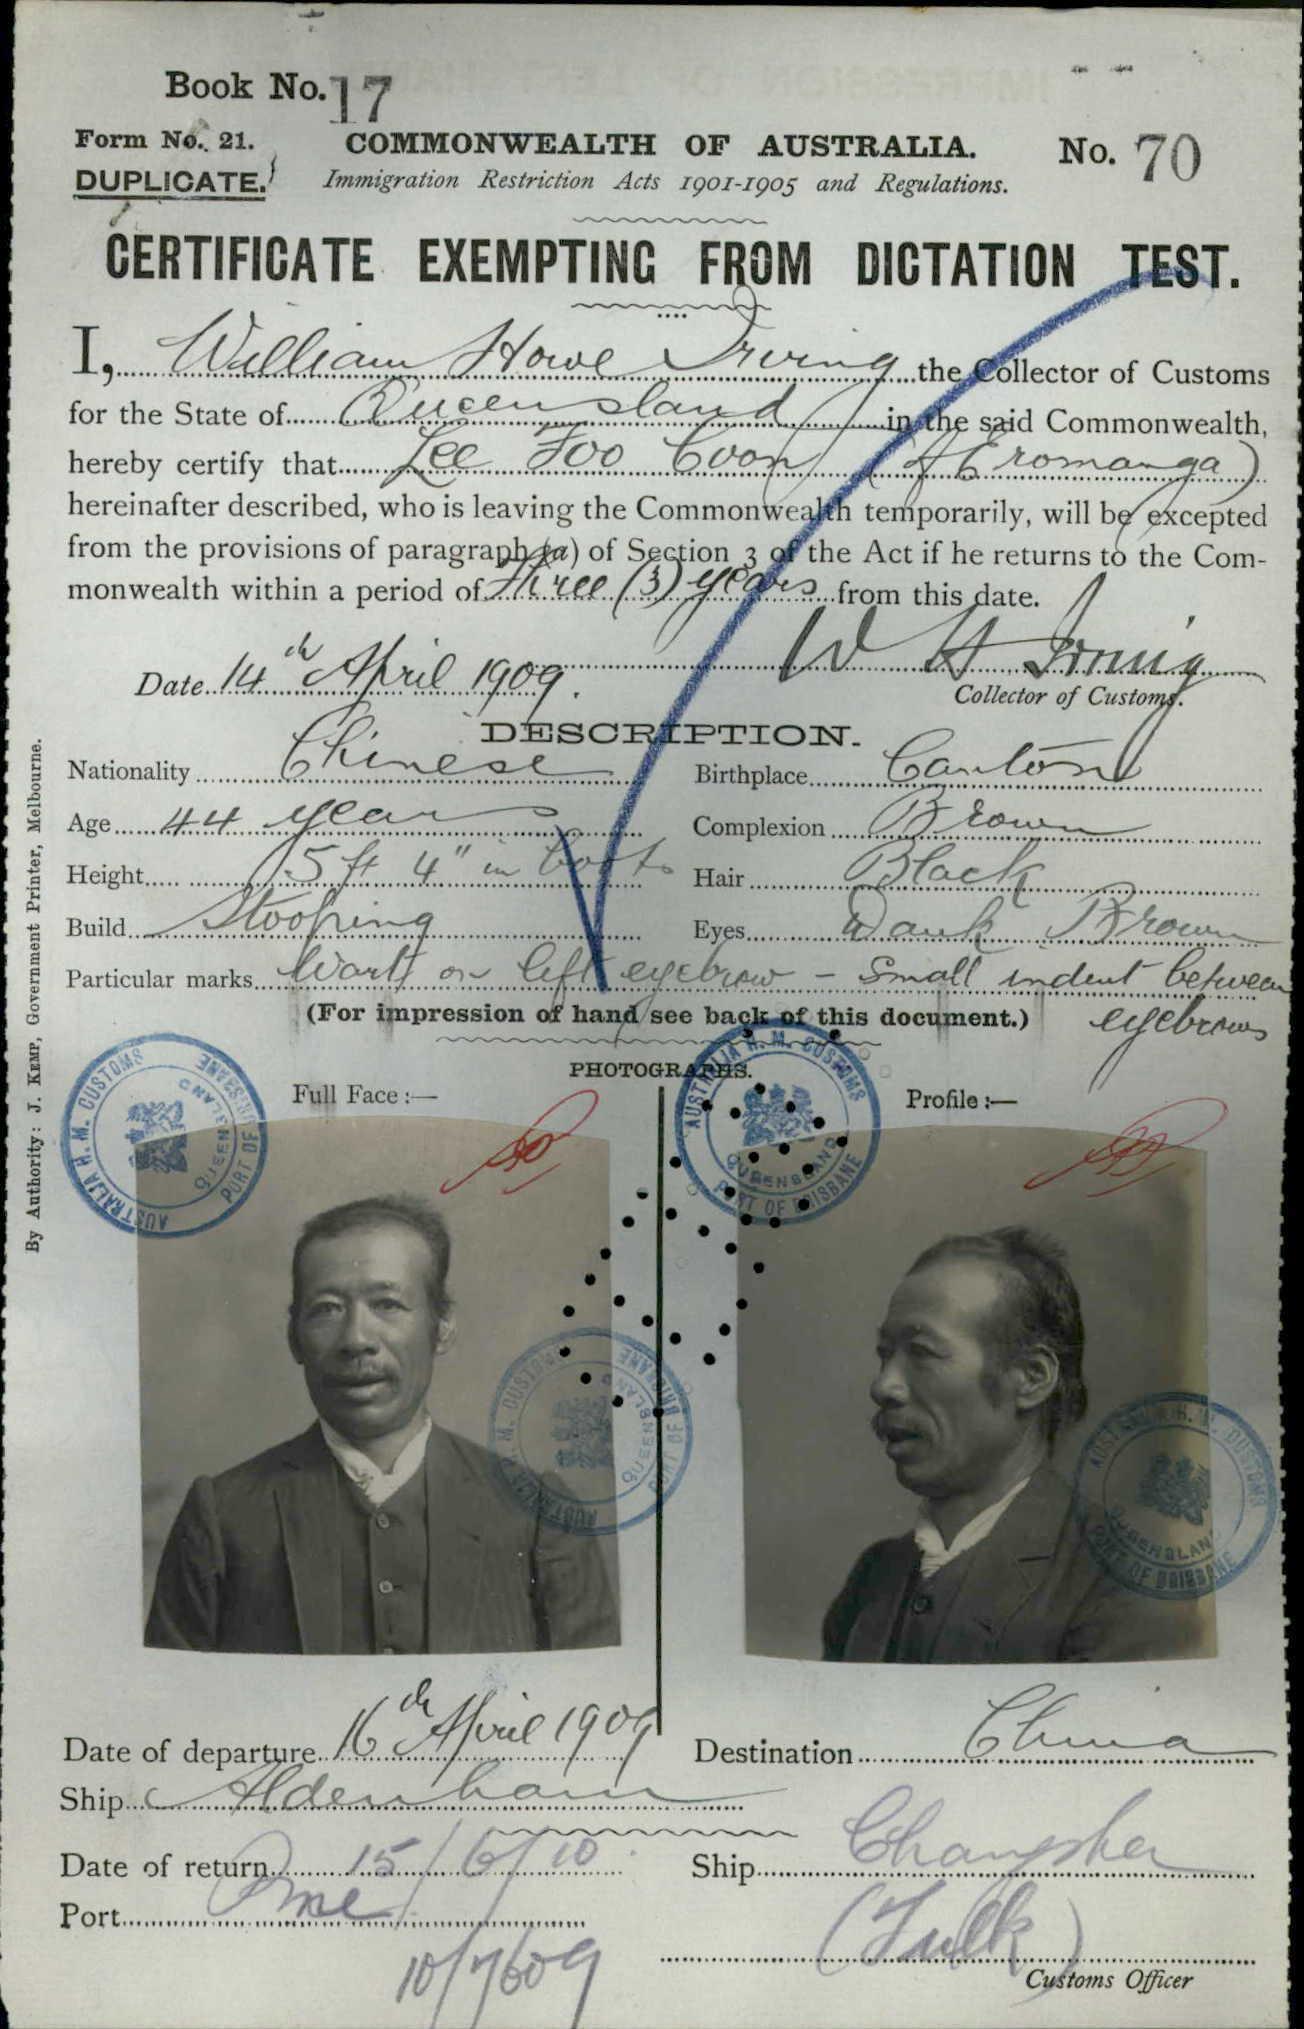 Book No. 17
Form No. 21.
DUPLICATE.
COMMONWEALTH OF AUSTRALIA.
No. 70
Immigration Restriction Acts 1901-1905 and Regulations.
CERTIFICATE EXEMPTING FROM DICTATION TEST.
I, William Howe Irving the Collector of Customs
for the State of Queensland in the said Commonwealth,
hereby certify that Lee Foo Coon (of Eromanga)
hereinafter described, who is leaving the Commonwealth temporarily, will be excepted
from the provisions of paragraph (a) of Section 3 of the Act if he returns to the Com-
monwealth within a period of three (3) years from this date.
Date 14th April 1909.
W H Irving
Collector of Customs.
DESCRIPTION.
Nationality Chinese
Birthplace Canton
Age 44 years
Complexion Brown
Height 5 ft 4" in boots
Hair Black
Build Stooping
Eyes Dark Brown
Particular marks Wart on left eyebrow - small indent between
eyebrows
(For impression of hand see back of this document.)
PHOTOGRAPHS.
Full Face:—
Profile:—
AUSTRALIA H. M. CUSTOMS
QUEENSLAND
PORT OF BRISBANE
AUSTRALIA H. M. CUSTOMS
QUEENSLAND
PORT OF BRISBANE
AUSTRALIA H. M. CUSTOMS
QUEENSLAND
PORT OF BRISBANE
AUSTRALIA H. M. CUSTOMS
QUEENSLAND
PORT OF BRISBANE
Date of departure 16th April 1909
Destination China
Ship Aldenham
Date of return 15/6/10
Ship Changsha
Port Bne
(Tulk)
Customs Officer
By Authority: J. KEMP, Government Printer, Melbourne.